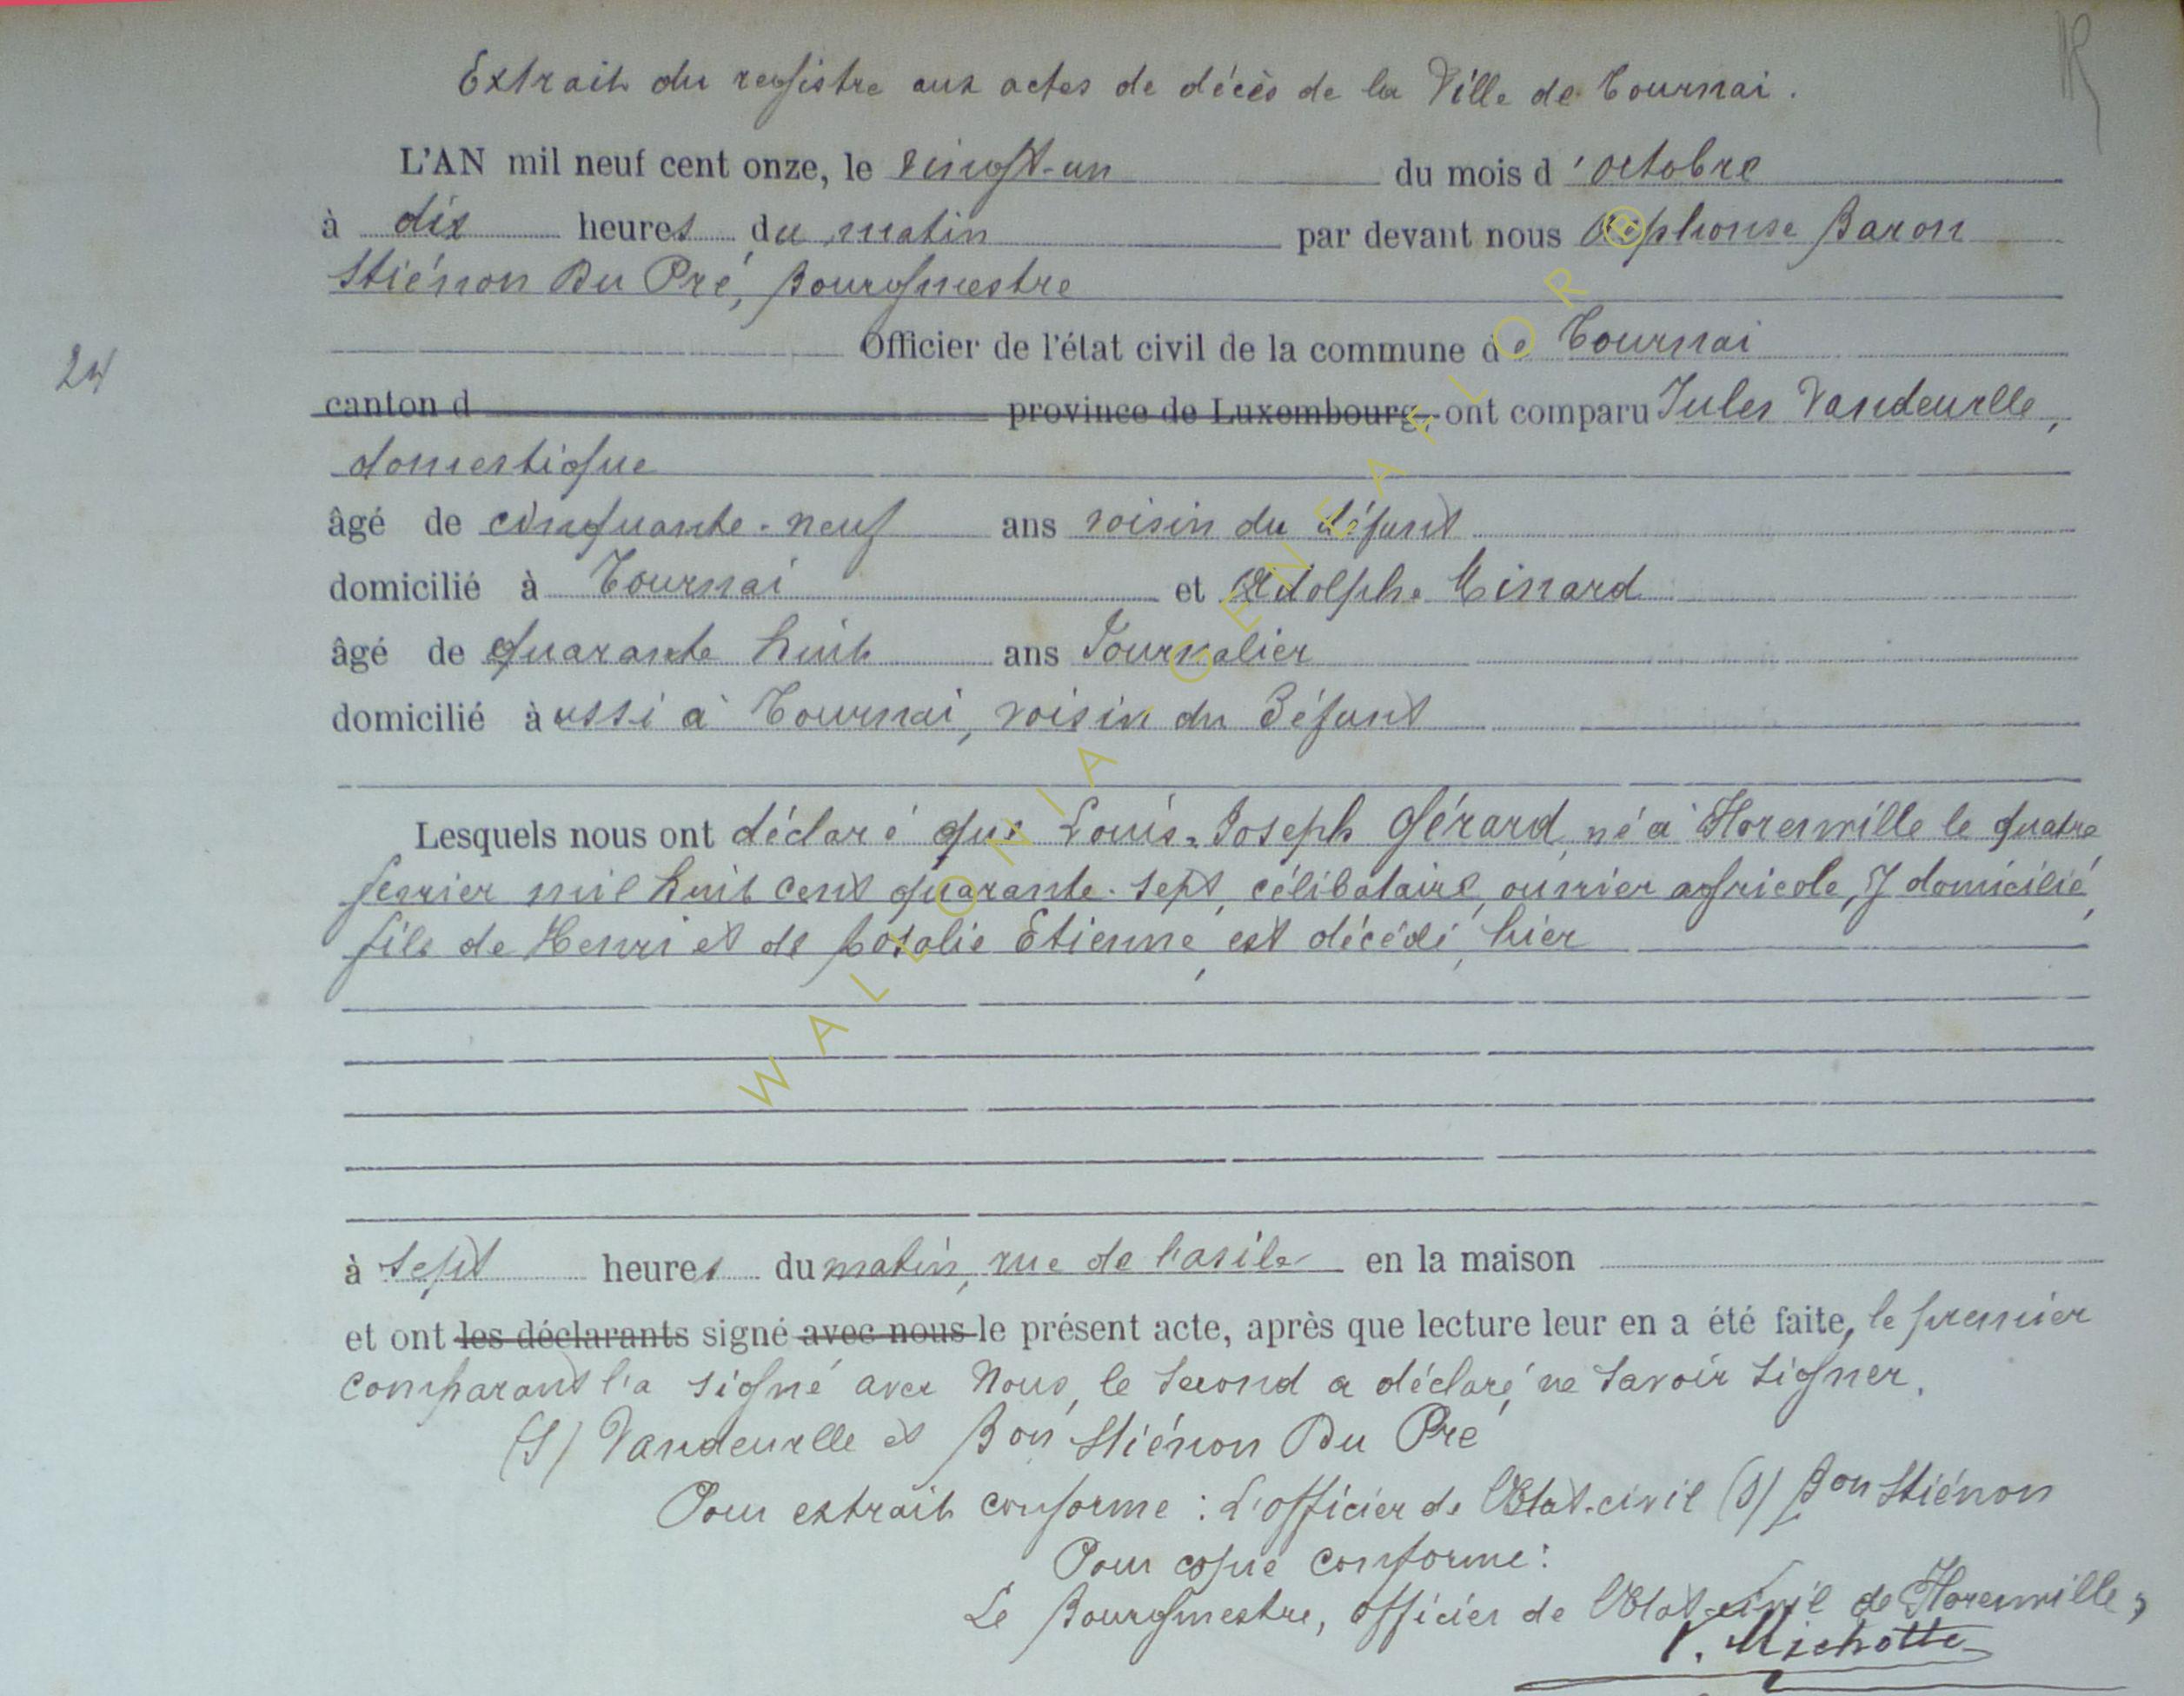 Extrait du registre aux actes de décès de la Ville de Tournai.
L'AN mil neuf cent onze, le vingt-un du mois d'octobre
à dix heures du matin par devant nous Alphonse Baron
Stiénon Du Pré, Bourgmestre
Officier de l'état civil de la commune de Tournai
24
canton d province de Luxembourg, ont comparu Jules Vandeurlle,
domestique
âgé de cinquante-neuf ans voisin du défunt
domicilié à Tournai et Adolphe Minard
âgé de quarante huit ans Journalier
domicilié aussi à Tournai, voisin du Défunt
Lesquels nous ont déclaré que Louis-Joseph Gérard, né à Florenville le quatre
fevrier mil huit cent quarante-sept, célibataire, ouvrier agricole, y domicilié,
fils de Henri et de Rosalie Etienne, est décédé, hier
à sept heures du matin, rue de l'asile en la maison
et ont les déclarants signé avec nous le présent acte, après que lecture leur en a été faite, le premier
comparant l'a signé avec Nous, le Second a déclaré ne Savoir Signer.
(S) Vandeurlle et Bon Stiénon Du Pré
Pour extrait conforme : L'officier de l'Etat-civil (S) Bon Stiénon
Pour copie conforme:
Le Bourgmestre, officier de l'Etat-civil de Florenville,
V. Michotte
WALLONIA GENEAFLOR ®